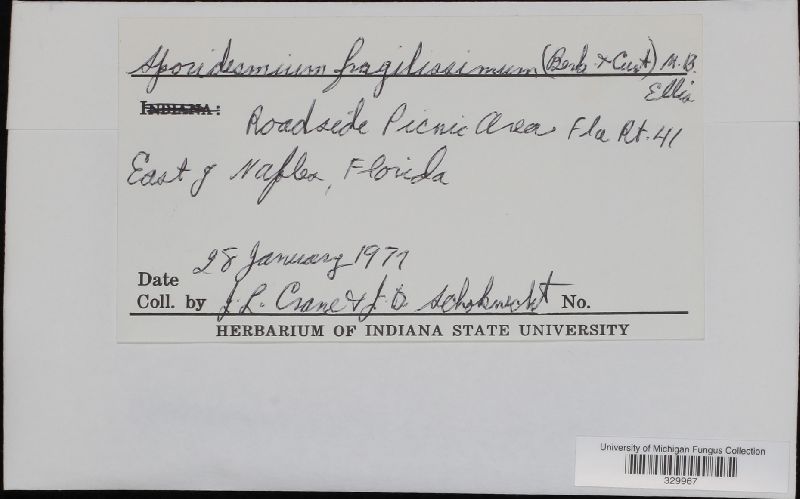 Sporidesmium fragilissimum (Berk & Curt) M.B.
Ellis
INDIANA:
Roadside Picnic Area Fla Rt. 41
East of Naples, Florida
Date 28 January 1977
Coll. by J. L. Crane & J. D. Schoknecht No.
HERBARIUM OF INDIANA STATE UNIVERSITY
University of Michigan Fungus Collection
329967